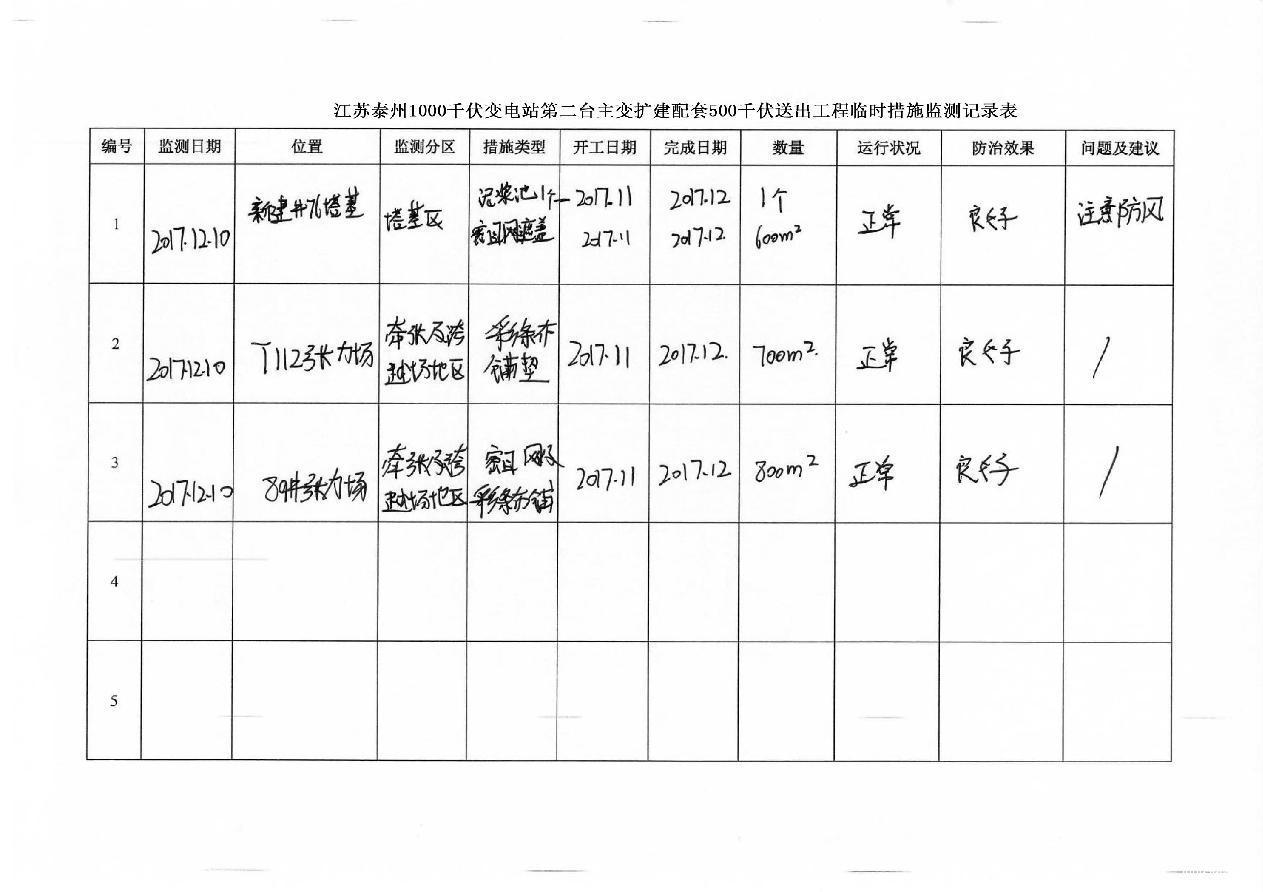 江苏泰州1000千伏变电站第二台主变扩建配套500千伏送出工程临时措施监测记录表
编号 监测日期 位置 监测分区 措施类型 开工日期 完成日期 数量 运行状况 防治效果 问题及建议
1 2017.12.10 新建#76塔基 塔基区 泥浆池1个 2017.11 2017.12 1个 正常 良好 注意防风
密目网遮盖 2017.11 2017.12. 600m²
2 2017.12.10 T112张力场 牵张及跨 彩条布 2017.11 2017.12. 700m². 正常 良好 /
越场地区 铺垫
3 2017.12.10 89#张力场 牵张及跨 密目网及 2017.11 2017.12 800m² 正常 良好 /
越场地区 彩条布铺
4
5